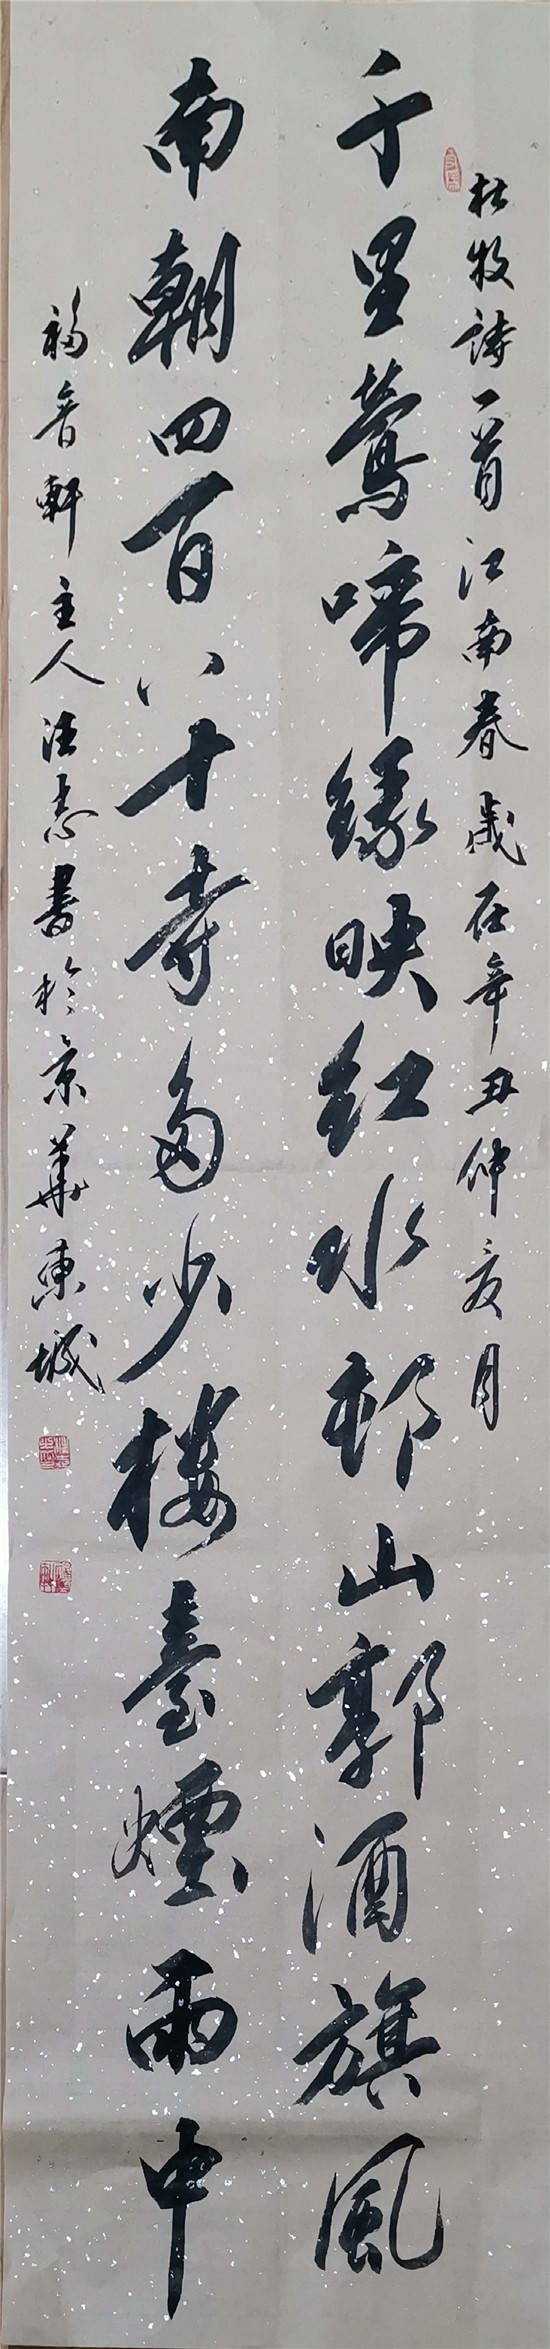 杜牧詩一首江南春歲在辛丑仲夏月
千里鶯啼綠映紅水邨山郭酒旗風
南朝四百八十寺多少樓臺煙雨中
福音軒主人汪志書於京華東城